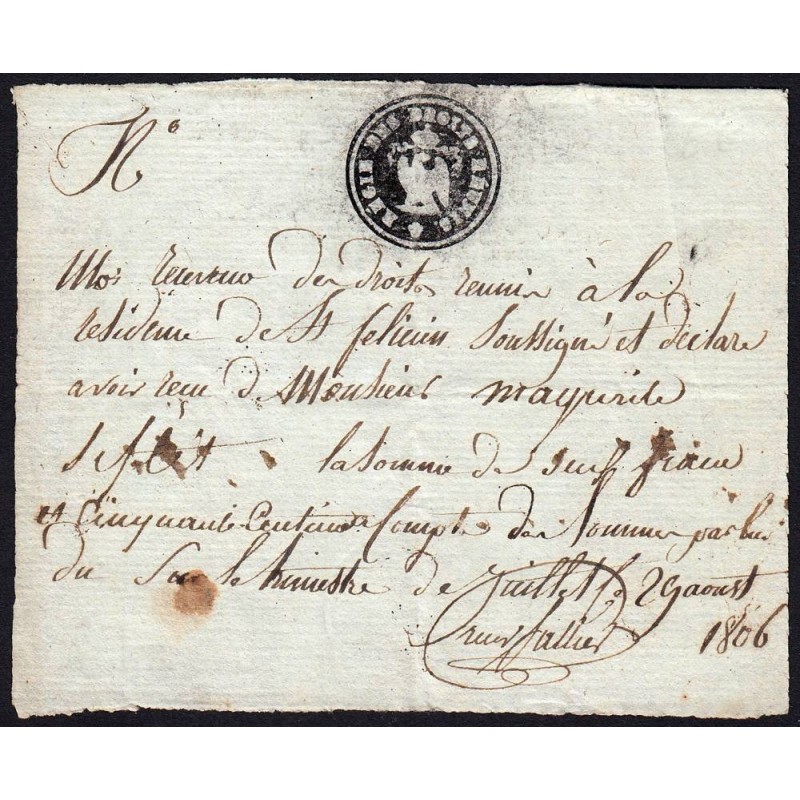 N°
Moi receveur des droits reunis à la
residence de St felicien soussigné et declare
avoir recu de Monsieur
la somme de neuf francs
et Cinquante Centimes Compte des sommes par lui
du sur le trimestre de Juillet 29 aoust
1806